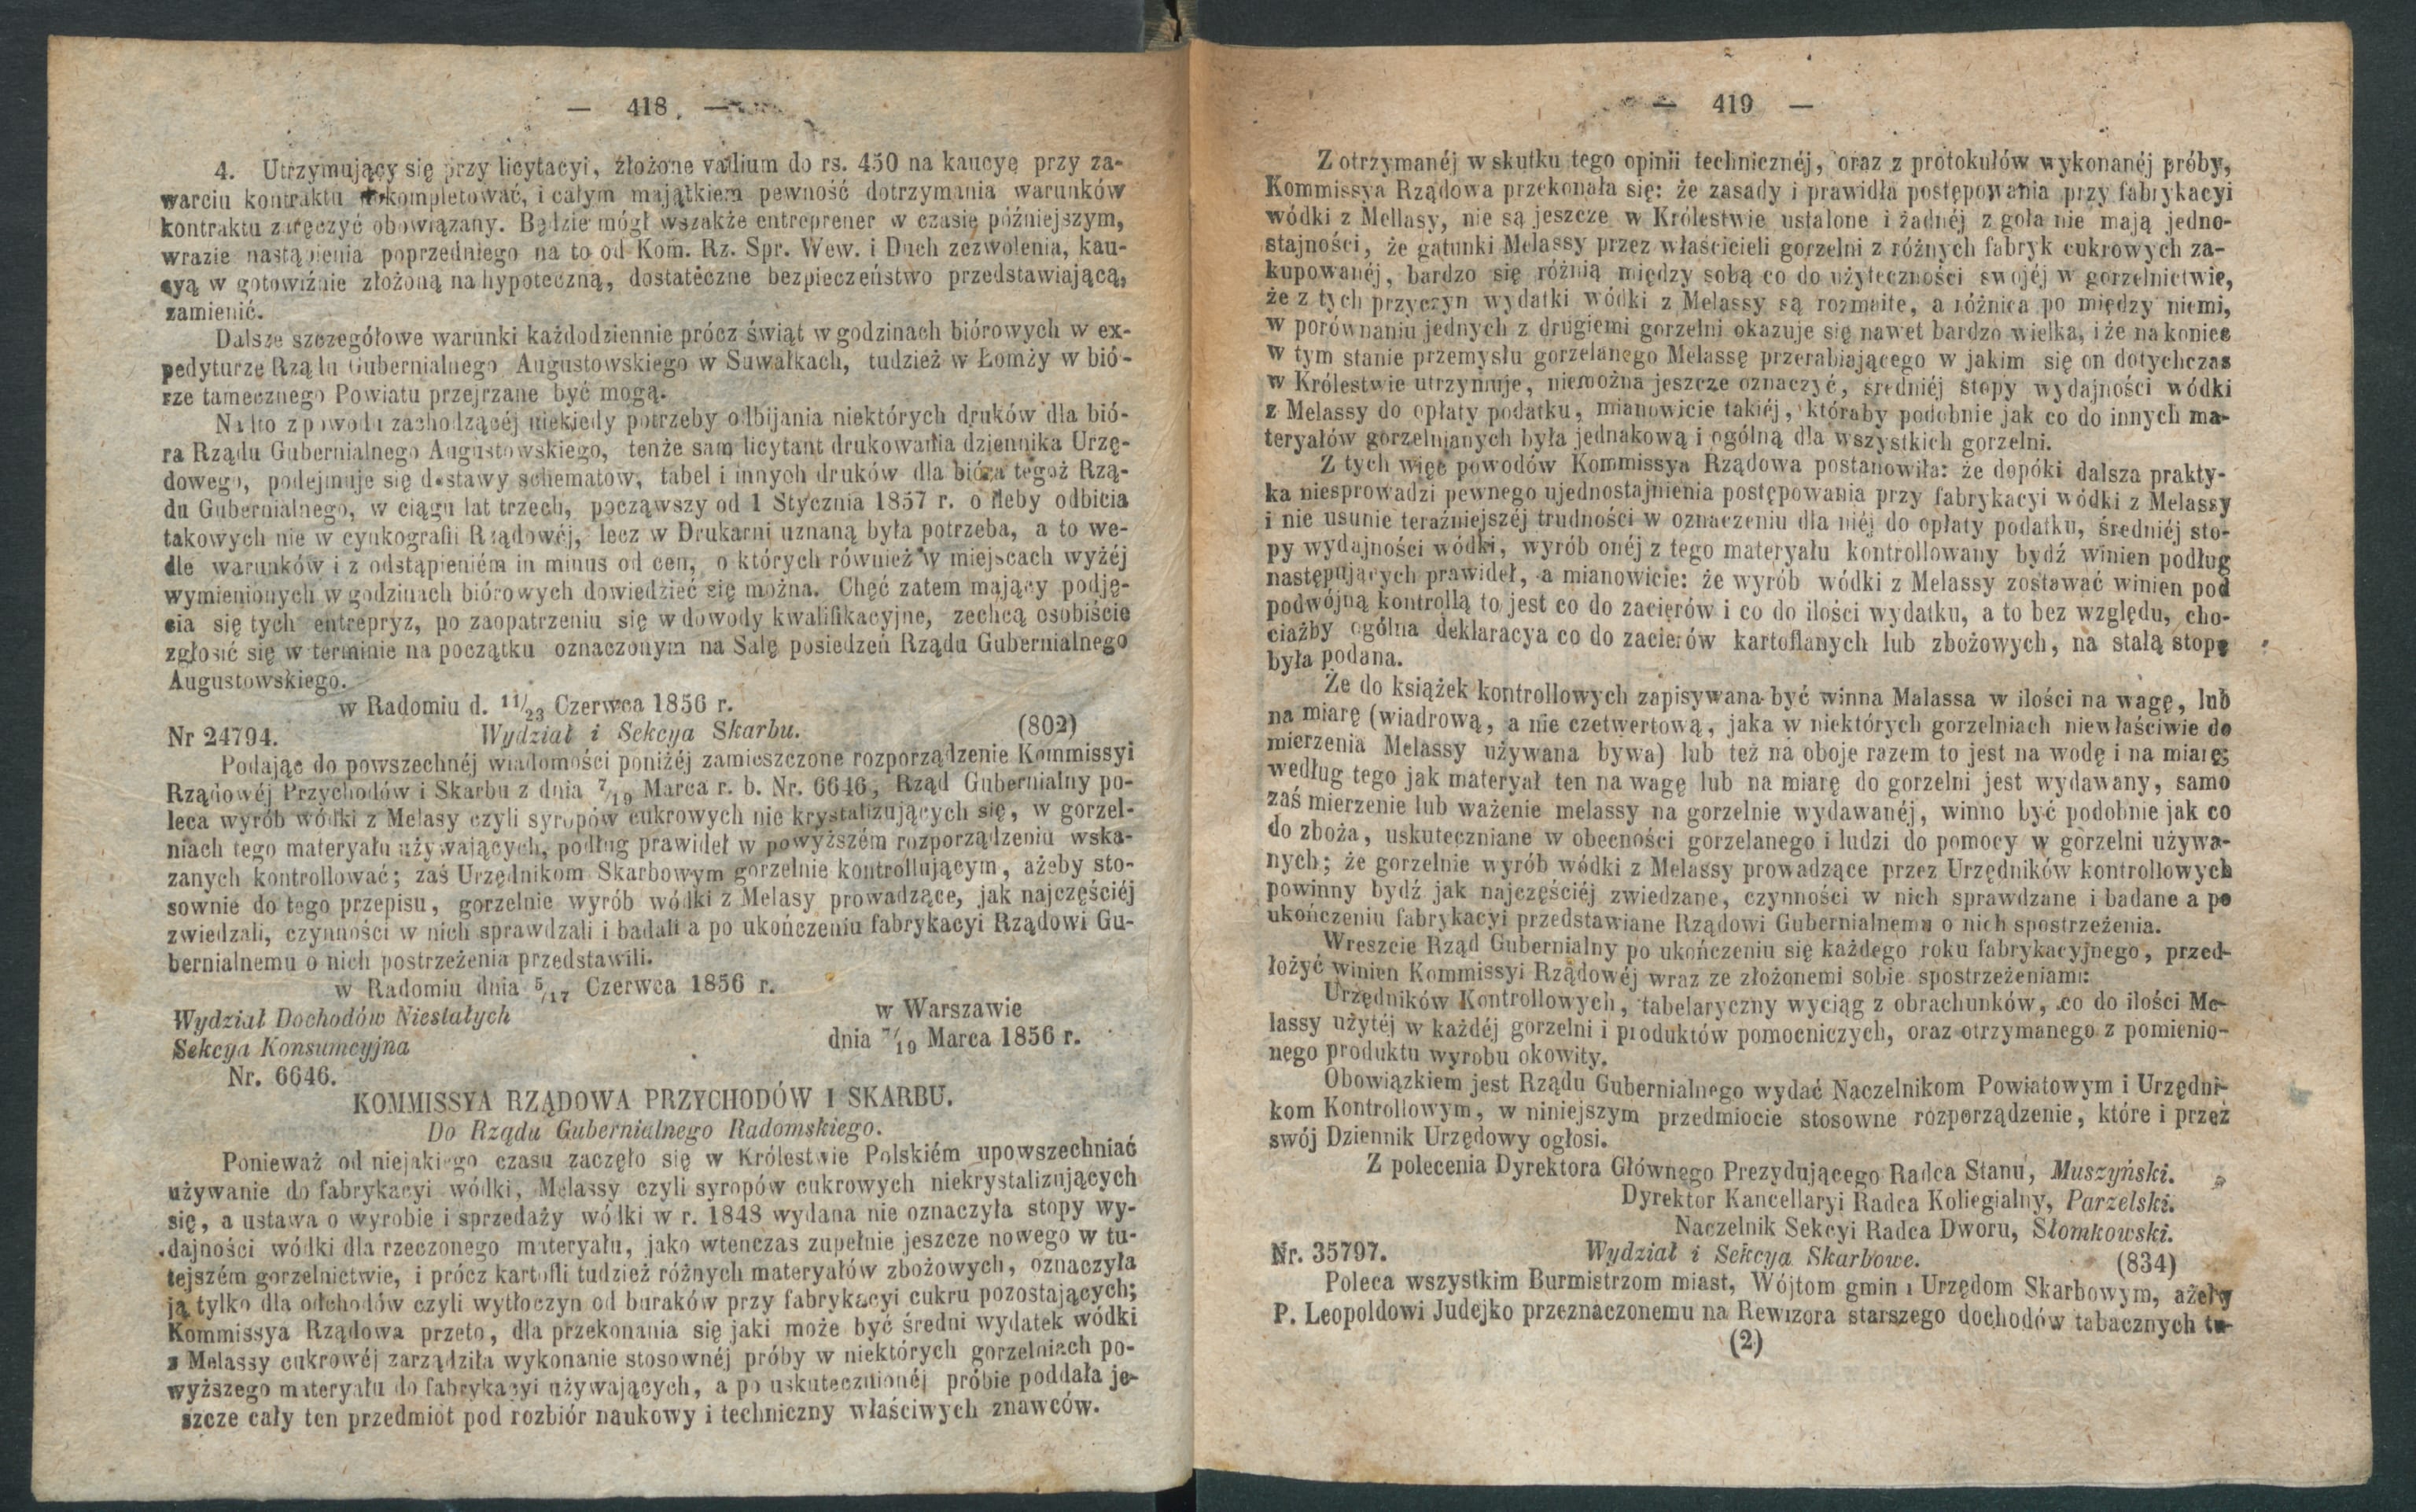 — 418 —
4. Utrzymujący się przy licytacyi, złożone vadium do rs. 450 na kaucyę przy za-
warciu kontraktu skompletować, i całym majątkiem pewność dotrzymania warunków
kontraktu zaręczyć obowiązany. Będzie mógł wszakże entreprener w czasie późniejszym,
wrazie nastąpienia poprzedniego na to od Kom. Rz. Spr. Wew. i Duch zezwolenia, kau-
cyą w gotowiźnie złożoną na hypoteczną, dostatéczne bezpieczeństwo przedstawiającą,
zamienić.
Dalsze szczegółowe warunki każdodziennie prócz świąt w godzinach biórowych w ex-
pedyturze Rządu Gubernialnego Augustowskiego w Suwałkach, tudzież w Łomży w bió-
rze tamecznego Powiatu przejrzane być mogą.
Nadto z powodu zachodzącéj niekiedy potrzeby odbijania niektórych druków dla bió-
ra Rządu Gubernialnego Augustowskiego, tenże sam licytant drukowania dziennika Urzę-
dowego, podejmuje się dostawy schematów, tabel i innych druków dla bióra tegoż Rzą-
du Gubernialnego, w ciągu lat trzech, począwszy od 1 Stycznia 1857 r. o ileby odbicia
takowych nie w cynkografii Rządowéj, lecz w Drukarni uznaną była potrzeba, a to we-
dle warunków i z odstąpieniém in minus od cen, o których również w miejscach wyżéj
wymienionych w godzinach biórowych dowiedzieć się można. Chęć zatem mający podję-
cia się tych entrepryz, po zaopatrzeniu się w dowody kwalifikacyjne, zechcą osobiście
zgłosić się w terminie na początku oznaczonym na Salę posiedzeń Rządu Gubernialnego
Augustowskiego.
w Radomiu d. 11/23 Czerwca 1856 r.
Nr 24794. Wydział i Sekcya Skarbu. (802)
Podając do powszechnéj wiadomości poniżéj zamieszczone rozporządzenie Kommissyi
Rządowéj Przychodów i Skarbu z dnia 7/19 Marca r. b. Nr. 6646, Rząd Gubernialny po-
leca wyrób wódki z Melasy czyli syropów cukrowych nie krystalizujących się, w gorzel-
niach tego materyału używających, podług prawideł w powyższém rozporządzeniu wska-
zanych kontrollować; zaś Urzędnikom Skarbowym gorzelnie kontrollującym, ażeby sto-
sownie do tego przepisu, gorzelnie wyrób wódki z Melasy prowadzące, jak najczęściéj
zwiedzali, czynności w nich sprawdzali i badali a po ukończeniu fabrykacyi Rządowi Gu-
bernialnemu o nich postrzeżenia przedstawili.
w Radomiu dnia 5/17 Czerwca 1856 r.
Wydział Dochodów Niestałych
w Warszawie
Sekcya Konsumcyjna
dnia 7/19 Marca 1856 r.
Nr. 6646.
KOMMISSYA RZĄDOWA PRZYCHODÓW I SKARBU.
Do Rządu Gubernialnego Radomskiego.
Ponieważ od niejakiego czasu zaczęło się w Królestwie Polskiém upowszechniać
używanie do fabrykacyi wódki, Melassy czyli syropów cukrowych niekrystalizujących
się, a ustawa o wyrobie i sprzedaży wódki w r. 1848 wydana nie oznaczyła stopy wy-
dajności wódki dla rzeczonego materyału, jako wtenczas zupełnie jeszcze nowego w tu-
tejszém gorzelnictwie, i prócz kartofli tudzież różnych materyałów zbożowych, oznaczyła
ją tylko dla odchodów czyli wytłoczyn od buraków przy fabrykacyi cukru pozostających;
Kommissya Rządowa przeto, dla przekonania się jaki może być średni wydatek wódki
z Melassy cukrowéj zarządziła wykonanie stosownéj próby w niektórych gorzelniach po-
wyższego materyału do fabrykacyi używających, a po uskutecznionéj próbie poddała je-
szcze cały ten przedmiot pod rozbiór naukowy i techniczny właściwych znawców.
— 419 —
Z otrzymanéj w skutku tego opinii technicznéj, oraz z protokułów wykonanéj próby,
Kommissya Rządowa przekonała się: że zasady i prawidła postępowania przy fabrykacyi
wódki z Mellasy, nie są jeszcze w Królestwie ustalone i żadnéj z goła nie mają jedno-
stajności, że gatunki Melassy przez właścicieli gorzelni z różnych fabryk cukrowych za-
kupowanéj, bardzo się różnią między sobą co do użyteczności swojéj w gorzelnictwie,
że z tych przyczyn wydatki wódki z Melassy są rozmaite, a różnica po między niemi,
w porównaniu jednych z drugiemi gorzelni okazuje się nawet bardzo wielka, i że na koniec
w tym stanie przemysłu gorzelanego Melassę przerabiającego w jakim się on dotychczas
w Królestwie utrzymuje, niemożna jeszcze oznaczyć, średniéj stopy wydajności wódki
z Melassy do opłaty podatku, mianowicie takiéj, któraby podobnie jak co do innych ma-
teryałów gorzelnianych była jednakową i ogólną dla wszystkich gorzelni.
Z tych więc powodów Kommissya Rządowa postanowiła: że dopóki dalsza prakty-
ka niesprowadzi pewnego ujednostajnienia postępowania przy fabrykacyi wódki z Melassy
i nie usunie teraźniejszéj trudności w oznaczeniu dla niéj do opłaty podatku, średniéj sto-
py wydajności wódki, wyrób onéj z tego materyału kontrollowany bydź winien podług
następujących prawideł, a mianowicie: że wyrób wódki z Melassy zostawać winien pod
podwójną kontrollą to jest co do zacierów i co do ilości wydatku, a to bez względu, cho-
ciażby ogólna deklaracya co do zacierów kartoflanych lub zbożowych, na stałą stopę
była podana.
Że do książek kontrollowych zapisywana być winna Malassa w ilości na wagę, lub
na miarę (wiadrową, a nie czetwertową, jaka w niektórych gorzelniach niewłaściwie do
mierzenia Melassy używana bywa) lub też na oboje razem to jest na wodę i na miarę;
według tego jak materyał ten na wagę lub na miarę do gorzelni jest wydawany, samo
zaś mierzenie lub ważenie melassy na gorzelnie wydawanéj, winno być podobnie jak co
do zboża, uskuteczniane w obecności gorzelanego i ludzi do pomocy w gorzelni używa-
nych; że gorzelnie wyrób wódki z Melassy prowadzące przez Urzędników kontrollowych
powinny bydź jak najczęściéj zwiedzane, czynności w nich sprawdzane i badane a po
ukończeniu fabrykacyi przedstawiane Rządowi Gubernialnemu o nich spostrzeżenia.
Wreszcie Rząd Gubernialny po ukończeniu się każdego roku fabrykacyjnego, przed-
łożyć winien Kommissyi Rządowéj wraz ze złożonemi sobie spostrzeżeniami:
Urzędników Kontrollowych, tabelaryczny wyciąg z obrachunków, co do ilości Me-
lassy użytéj w każdéj gorzelni i produktów pomocniczych, oraz otrzymanego z pomienio-
nego produktu wyrobu okowity.
Obowiązkiem jest Rządu Gubernialnego wydać Naczelnikom Powiatowym i Urzędni-
kom Kontrollowym, w niniejszym przedmiocie stosowne rozporządzenie, które i przez
swój Dziennik Urzędowy ogłosi.
Z polecenia Dyrektora Głównego Prezydującego Radca Stanu, Muszyński.
Dyrektor Kancellaryi Radca Kollegialny, Parzelski.
Naczelnik Sekcyi Radca Dworu, Słomkowski.
Nr. 35797. Wydział i Sekcya Skarbowe. (834)
Poleca wszystkim Burmistrzom miast, Wójtom gmin i Urzędom Skarbowym, ażeby
P. Leopoldowi Judejko przeznaczonemu na Rewizora starszego dochodów tabacznych tu-
(2)